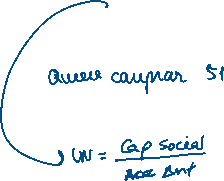 Quiere comprar 51
VN = Cap Social
Acc Ant